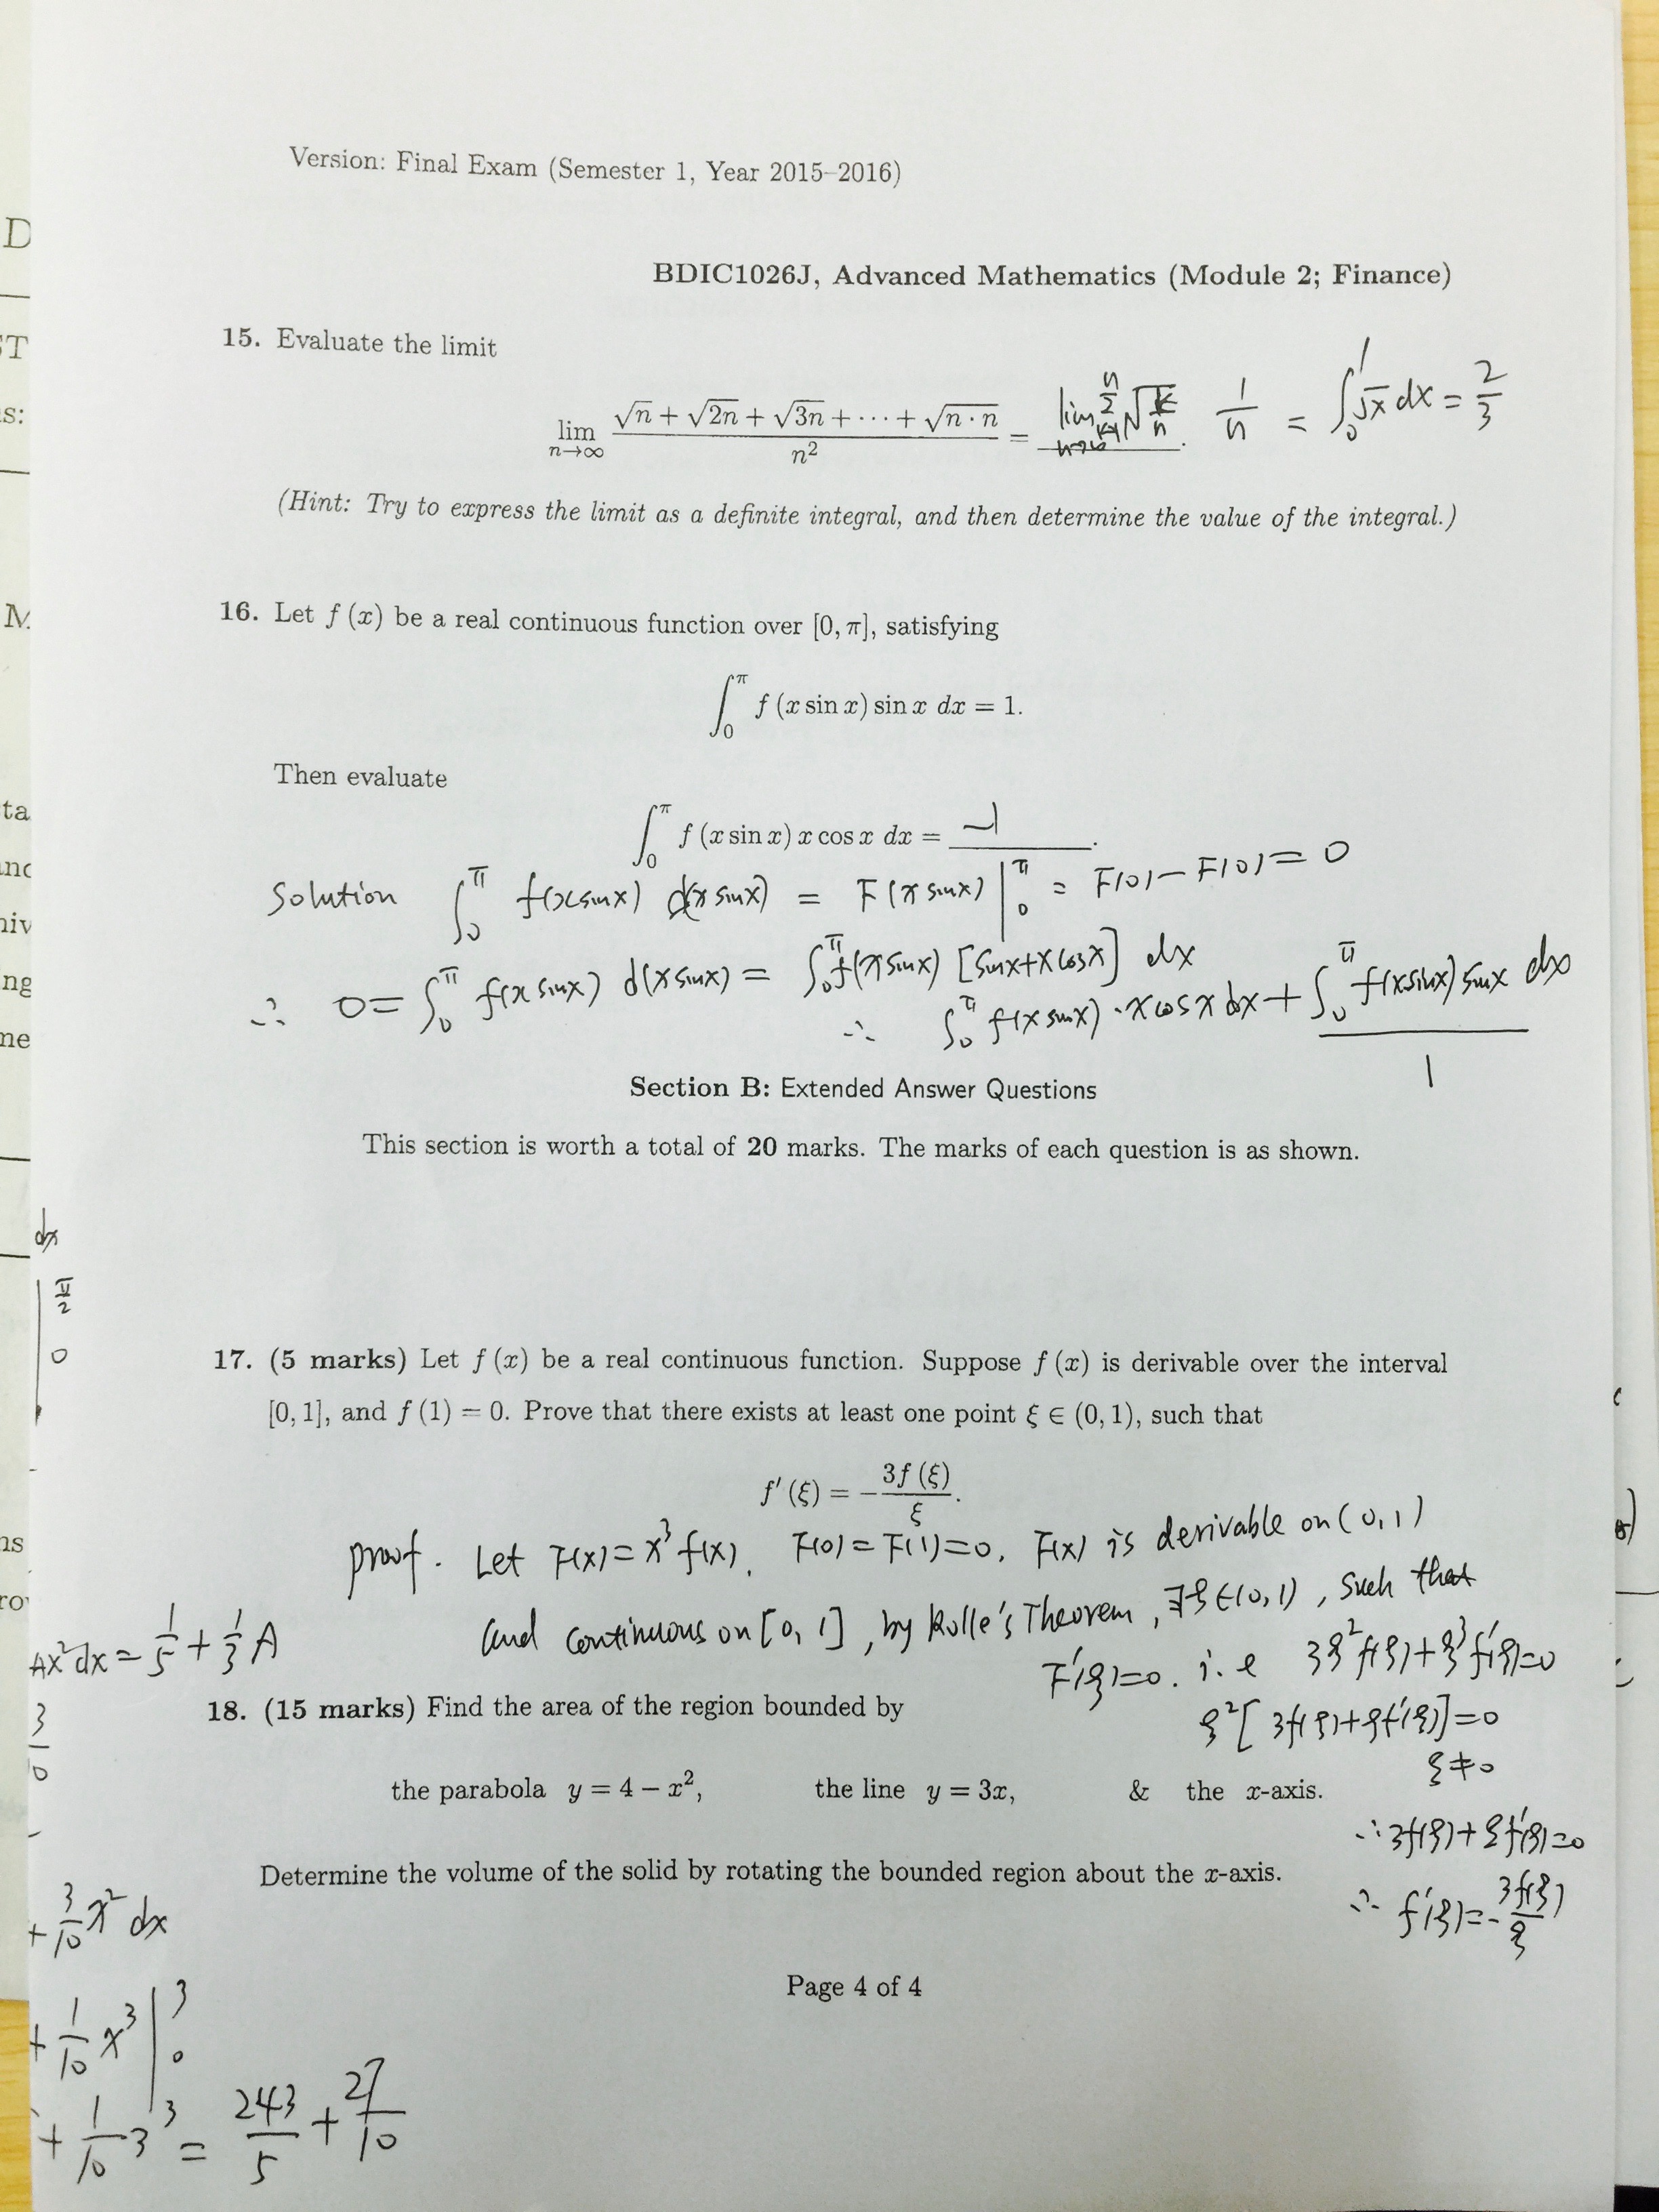 Version: Final Exam (Semester 1, Year 2015–2016)
BDIC1026J, Advanced Mathematics (Module 2; Finance)
15. Evaluate the limit
lim n→∞ (√n + √2n + √3n + ··· + √n·n) / n² = lim n→∞ Σ k=1 n √(k/n) · 1/n = ∫₀¹ √x dx = 2/3
(Hint: Try to express the limit as a definite integral, and then determine the value of the integral.)
16. Let f (x) be a real continuous function over [0, π], satisfying
∫₀^π f (x sin x) sin x dx = 1.
Then evaluate
∫₀^π f (x sin x) x cos x dx = -1.
Solution ∫₀^π f(x sinx) d(x sinx) = F(x sinx) |₀^π = F(0) - F(0) = 0
∴ 0 = ∫₀^π f(x sinx) d(x sinx) = ∫₀^π f(x sinx) [sinx + x cosx] dx
∴ ∫₀^π f(x sinx) · x cos x dx + ∫₀^π f(x sinx) sinx dx
1
Section B: Extended Answer Questions
This section is worth a total of 20 marks. The marks of each question is as shown.
dx
π/2
0
17. (5 marks) Let f (x) be a real continuous function. Suppose f (x) is derivable over the interval
[0, 1], and f (1) = 0. Prove that there exists at least one point ξ ∈ (0, 1), such that
f′ (ξ) = −3f (ξ)/ξ.
proof. Let F(x) = x³ f(x). F(0) = F(1) = 0, F(x) is derivable on (0, 1)
and continuous on [0, 1], by Rolle's Theorem, ∃ξ∈(0,1), such that
F′(ξ)=0. i.e 3ξ²f(ξ)+ξ³f′(ξ)=0
Ax²dx = 1/5 + 1/3 A
18. (15 marks) Find the area of the region bounded by
ξ²[3f(ξ)+ξf′(ξ)]=0
3/10
ξ≠0
the parabola y = 4 − x², the line y = 3x, & the x-axis.
∴ 3f(ξ)+ξf′(ξ)=0
Determine the volume of the solid by rotating the bounded region about the x-axis.
∴ f′(ξ)=-3f(ξ)/ξ
+ 3/10 x² dx
Page 4 of 4
+ 1/10 x³ |₀³
+ 1/10 3³ = 243/5 + 27/10